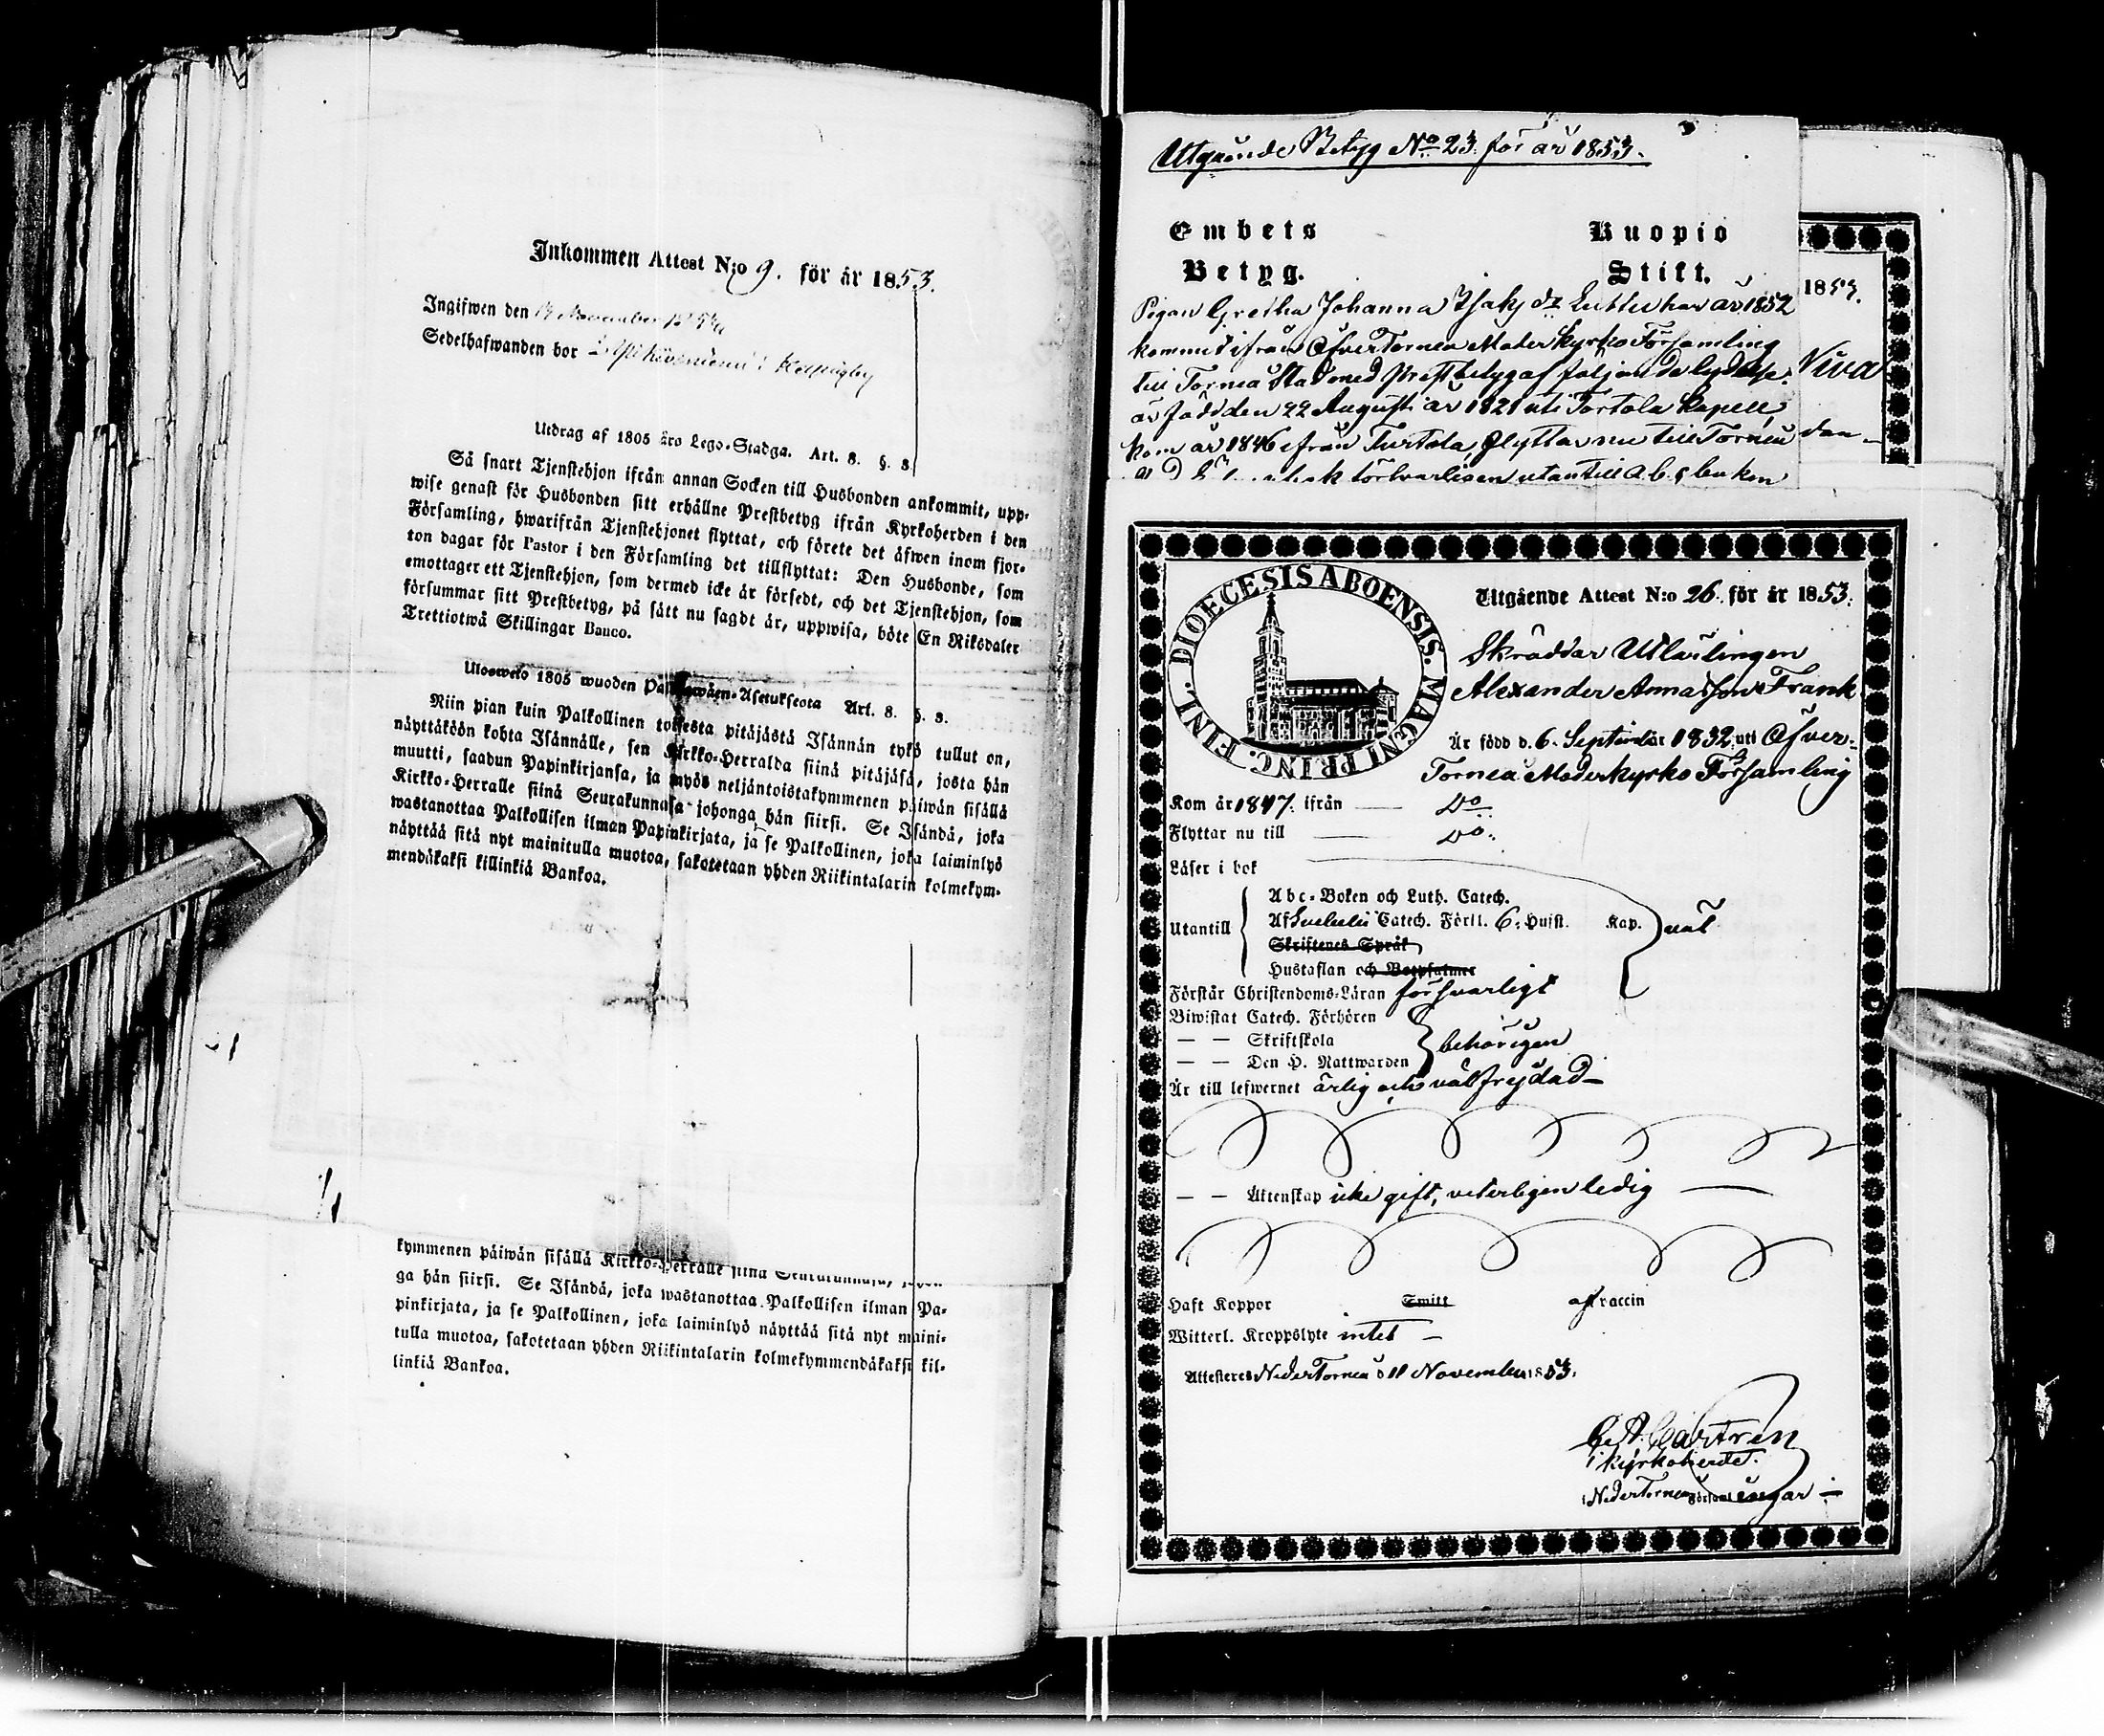 Inkommen Attest N:o 9. för år 1853.
Ingifwen den November
Sedelhafwanden bor
Utdrag af 1805 års Lego-Stadga. Art. 8. §. 8.
Så snart Tjenstehjon ifrån annan Socken till Husbonden ankommit, upp-
wise genast för Husbonden sitt erhållne Prestbetyg ifrån Kyrkoherden i den
Församling, hwarifrån Tjenstehjonet flyttat, och förete det äfwen inom fjor-
ton dagar för Pastor i den Församling det tillflyttat: Den Husbonde, som
emottager ett Tjenstehjon, som dermed icke är försedt, och det Tjenstehjon, som
försummar sitt Prestbetyg, på sätt nu sagdt är, uppwisa, böte En Riksdaler
Trettiotwå Skillingar Banco.
Ulosweto 1805 wuoden Asetuksesta Art. 8. §. 8.
Niin pian kuin Palkollinen toisesta pitäjästä Isännän tykö tullut on,
näyttäköön kohta Isännälle, sen Kirkko-Herralda siinä pitäjäsä, josta hän
muutti, saadun Papinkirjansa, ja myös neljäntoistakymmenen päiwän sisällä
Kirkko-Herralle siinä Seurakunnasa johonga hän siirsi. Se Isändä, joka
wastanottaa Palkollisen ilman Papinkirjata, ja se Palkollinen, joka laiminlyö
näyttää sitä nyt mainitulla muotoa, sakotetaan yhden Riikintalarin kolmekym-
mendäkaksi killinkiä Bankoa.
kymmenen päiwän sisällä Kirkko-Herralle siinä
ga hän siirsi. Se Isändä, joka wastanottaa Palkollisen ilman Pa-
pinkirjata, ja se Palkollinen, joka laiminlyö näyttää sitä nyt maini-
tulla muotoa, sakotetaan yhden Riikintalarin kolmekymmendäkaksi kil-
linkiä Bankoa.
Utgående Betyg No 23. för år 1853.
Embets Kuopio
Betyg. Stift.
Pigan Gretha Johanna Isaks dr har år 1852
kommit ifrån Öfver Torneå Moder kyrko Församling
till Torneå Stad med prestbetyg af följande lydelse:
är född den 22 Augusti år 1821 uti Tortola Kapell,
kom år 1846 ifrån Turtola, flyttar nu till Torneå
försvarligen utantill a. b. c boken
1853.
dan
DIOECESIS ABOENSIS. MAGNI PRINC. FINL.
Utgående Attest N:o 26. för år 1853.
Skräddar Utlärlingen
Alexander Annasson Frank
Är född d. 6. September 1832 uti Öfver-
Torneå Moderkyrko Församling
Kom år 1847. ifrån — Do
Flyttar nu till — Do.
Läser i bok
Utantill
Abc-Boken och Luth. Catech.
Af Svebelii Catech. Förkl. 6. Hufst. Kap. väl
Skriftenes Språk
Hustaflan och Botpsalmer
Förstår Christendoms-Läran försvarligt
Biwistat Catech. Förhören
— — Skriftskola behörigen
— — Den H. Nattwarden
Är till lefwernet ärlig och välfrejdad —
— — Äktenskap icke gift, veterligen ledig —
Haft Koppor Smitt af Vaccin
Witterl. Kroppslyte intet —
Attesteres Neder Torneå d 11 November 1853.
Castrén
kyrkoherde.
i Neder Torneå Församlingar —